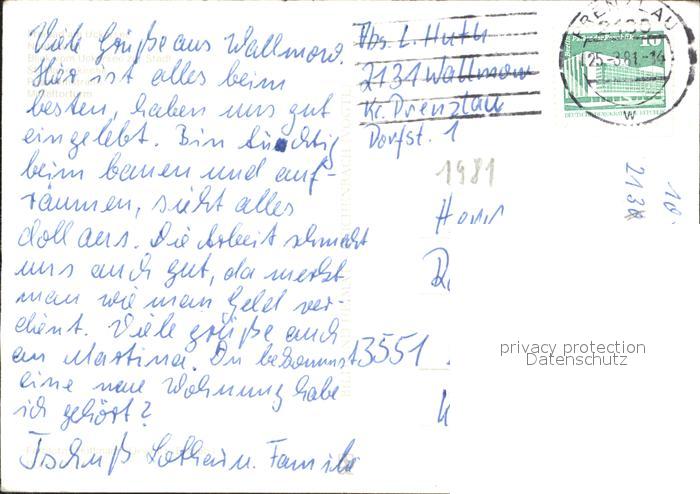 Viele Grüße aus Wallmow.
Hier ist alles beim
besten, haben uns gut
eingelebt. Bin tüchtig
beim bauen und auf-
räumen, sieht alles
doll aus. Die Arbeit schmeckt
uns auch gut, da merkt
man wie man Geld ver-
dient. Viele grüße auch
an Martina. Du bekommst
eine neue Wohnung habe
ich gehört?
Tschuß Lothar u. Familie
Abs. L. Huth
2131 Wallmow
Kr. Prenzlau
Dorfst. 1
1981
3551
PRENZLAU
25-3.81.-16
W
10
213
10
privacy protection
Datenschutz